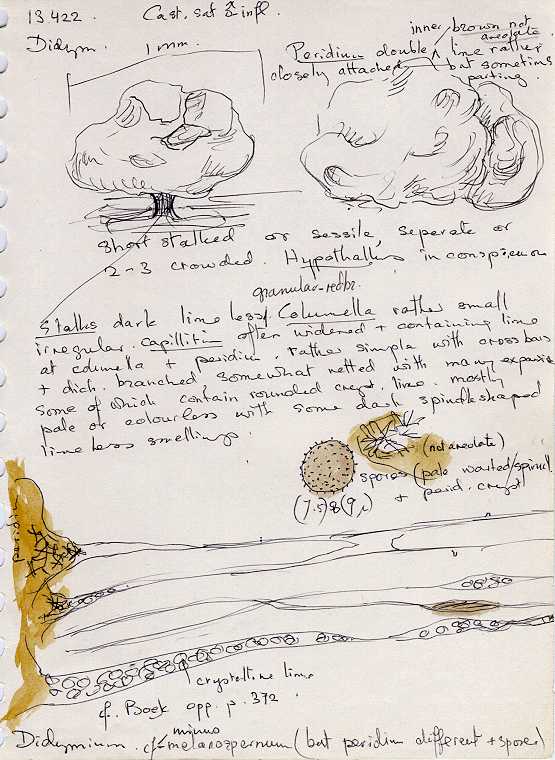 13422 Cast. sat & infl.
Didym. 1 mm.
inner brown not
areolate
Peridium double, lime rather
closely attached but sometimes
parting.
Short stalked or sessile, seperate or
2-3 crowded. Hypothallus inconspicuous
granular-redbr.
Stalks dark lime less/ Columella rather small
irregular. Capillitium often widened + containing lime
at columella + peridium. rather simple with cross bars
+ dich. branched, somewhat netted with many expansions
some of which contain rounded cryst. lime. mostly
pale or colourless with some dark spindle shaped
lime less swellings.
(not areolate)
spores (pale warted/spinul
(7.5) 8 (9 μ) + perid. cryst
peridium
crystalline lime
cf. Boek opp. p. 372
minus
Didymium. cf. melanospermum (but peridium different + spores)